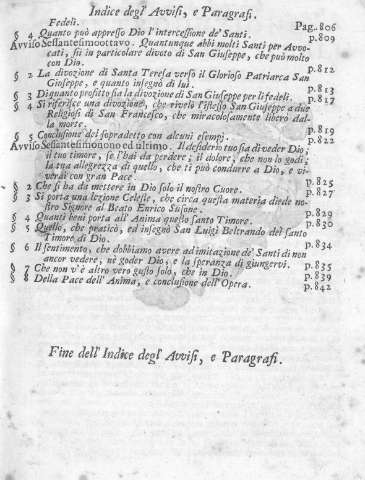 Indice degl' Avvisi, e Paragrafi.
Fedeli. Pag. 806
§ 4 Quanto può appresso Dio l'intercessione de' Santi. p.809
Avviso Sessantesimoottavo. Quantunque abbi molti Santi per Avvo-
cati, sii in particolare divoto di San Giuseppe, che può molto
con Dio. p.812
§ 2 La divozione di Santa Teresa verso il Glorioso Patriarca San
Giuseppe, e quanto insegnò di lui. p.813
§ 3 Di quanto profitto sia la divozione di San Giuseppe per li fedeli. p.817
§ 4 Si riferisce una divozione, che rivelò l'istesso San Giuseppe a due
Religiosi di San Francesco, che miracolosamente liberò dal-
la morte. p.819
§ 5 Conclusione del sopradetto con alcuni esempi. p.822
Avviso Sessantesimonono ed ultimo. Il desiderio tuo sia di veder Dio;
il tuo timore, se l'hai da perdere; il dolore, che non lo godi;
la tua allegrezza di quello, che ti può condurre a Dio, e vi-
verai con gran Pace. p.825
§ 2 Che si ha da mettere in Dio solo il nostro Cuore. p.827
§ 3 Si porta una lezione Celeste, che circa questa materia diede no-
stro Signore al Beato Enrico Susone. p.829
§ 4 Quanti beni porta all' Anima questo santo Timore. p.830
§ 5 Quello, che praticò, ed insegnò San Luigi Beltrando del santo
Timore di Dio. p.834
§ 6 Il sentimento, che dobbiamo avere ad imitazione de' Santi di non
ancor vedere, nè goder Dio, e la speranza di giungervi. p.835
§ 7 Che non v'è altro vero gusto solo, che in Dio. p.839
§ 8 Della Pace dell' Anima, e conclusione dell' Opera. p.842
Fine dell' Indice degl' Avvisi, e Paragrafi.